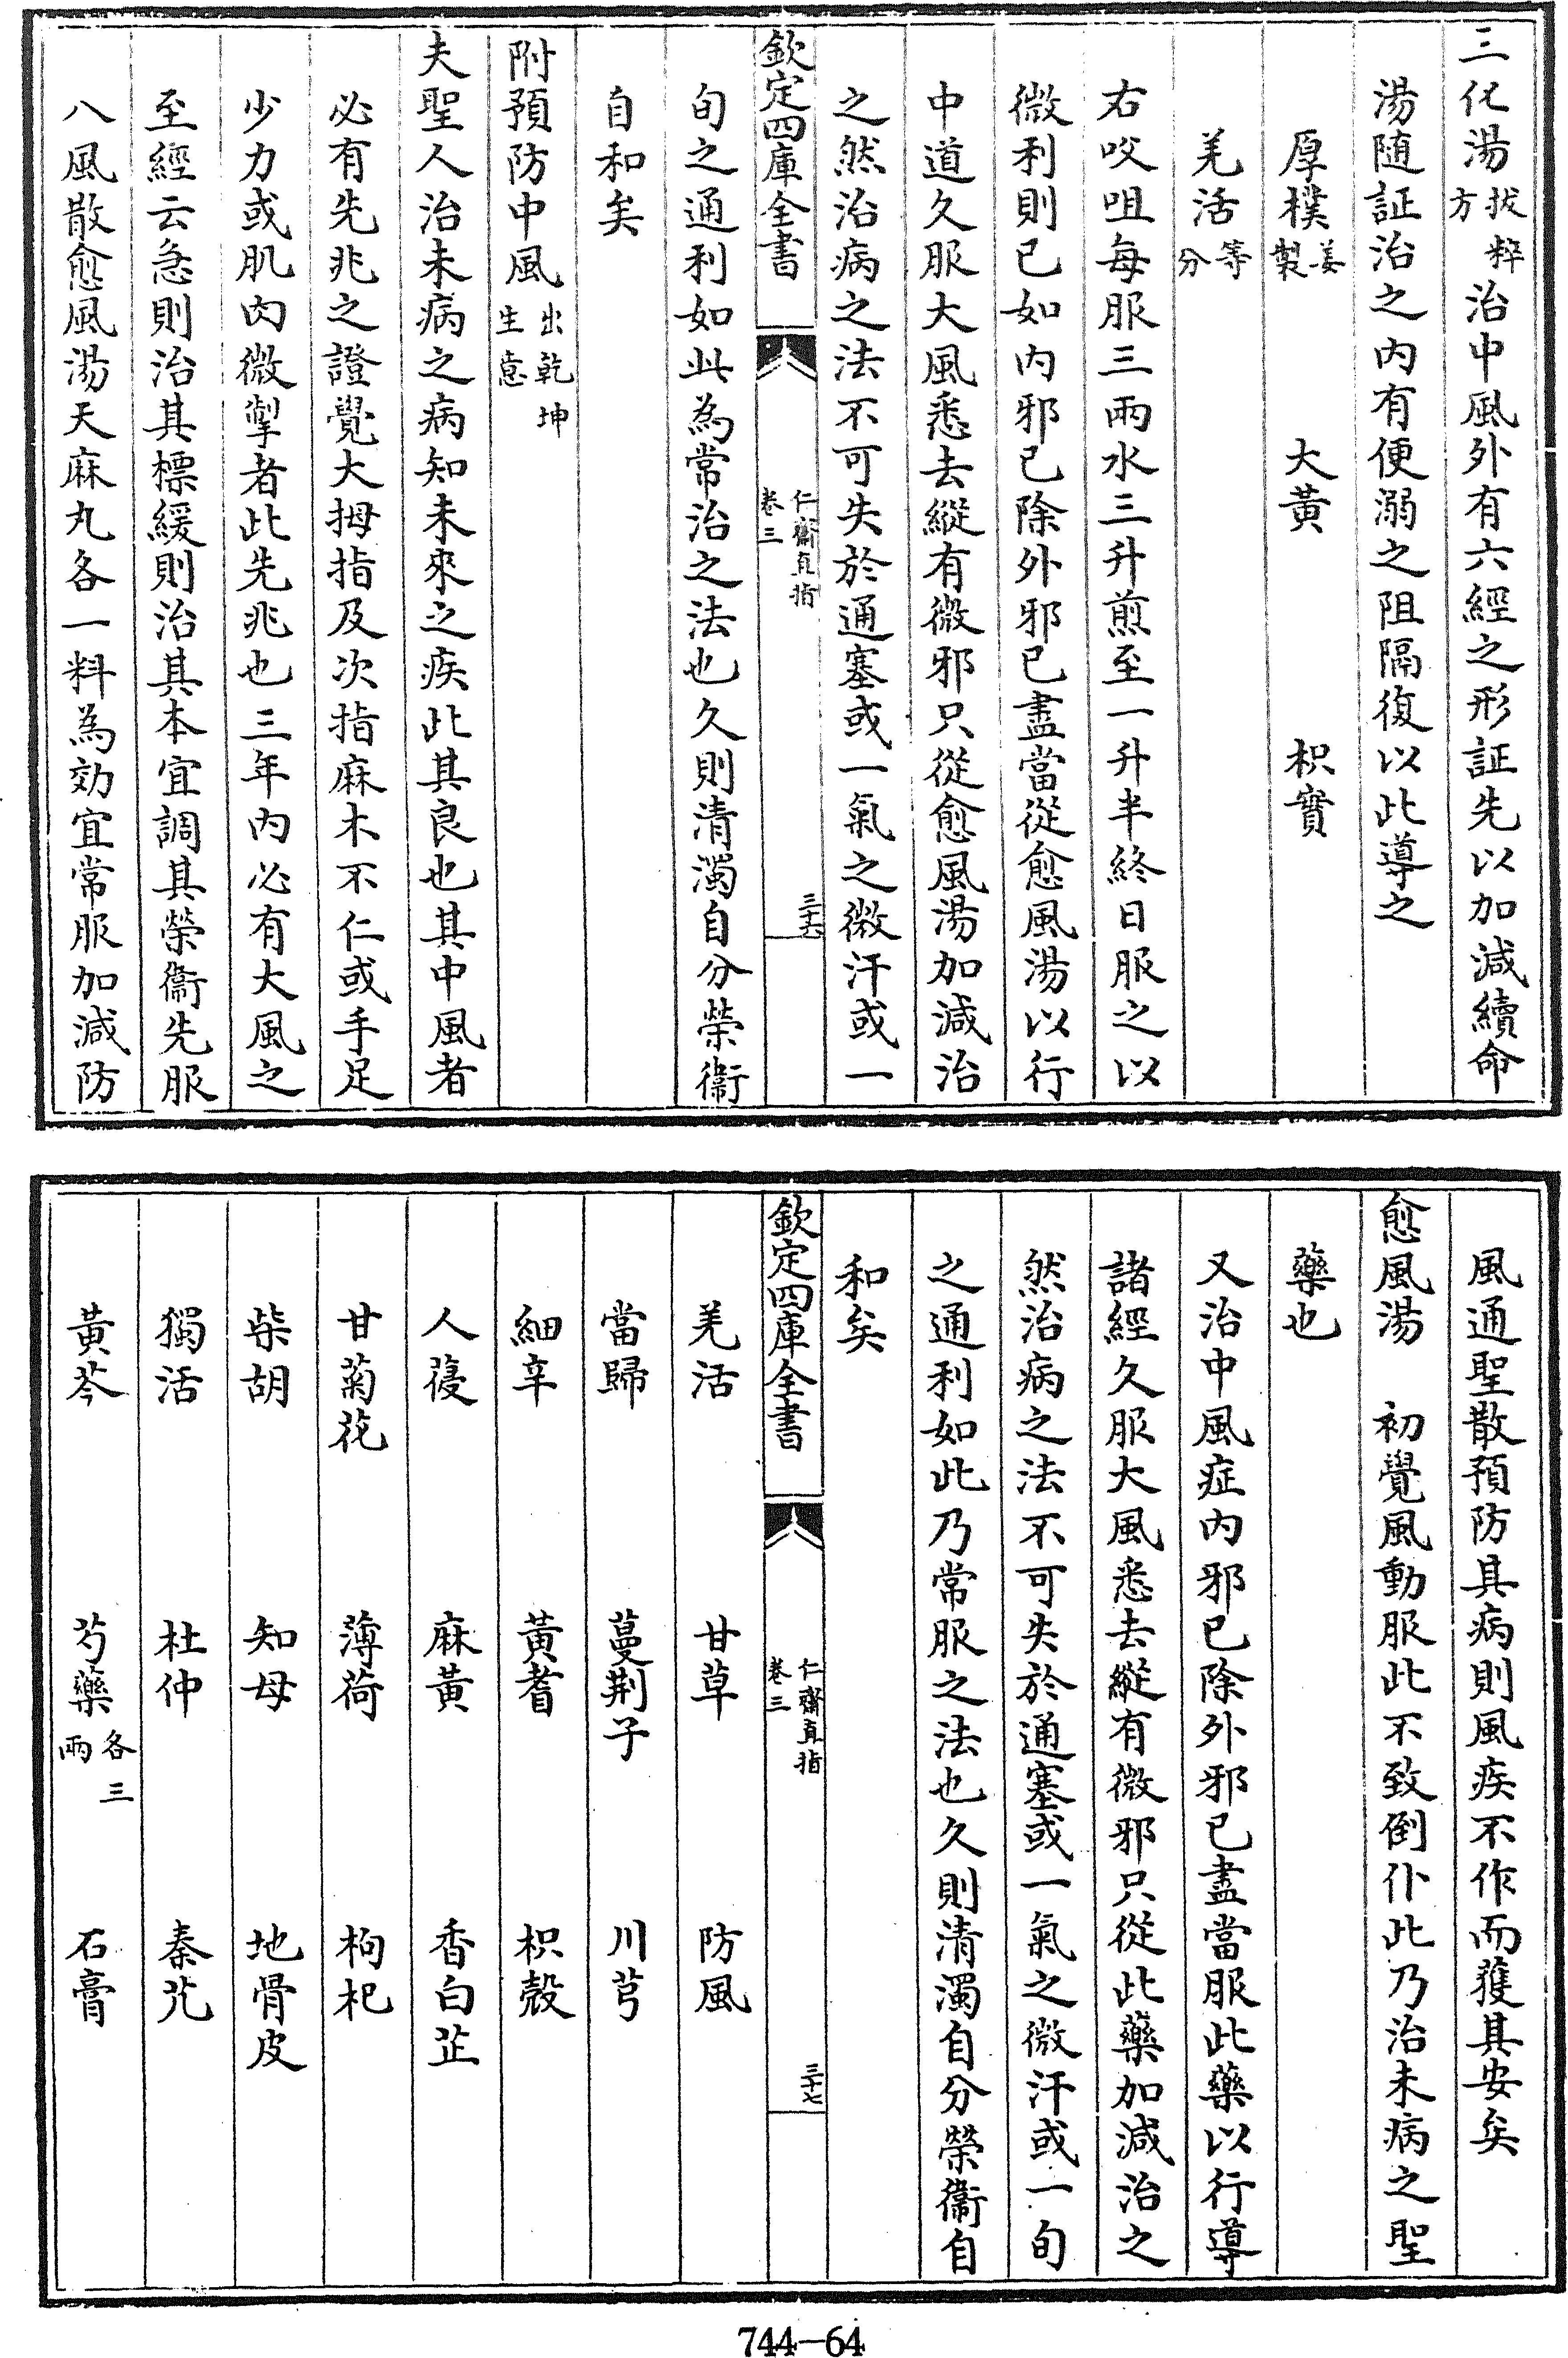 三化湯拔粹方治中風外有六經之形証先以加減續命
湯隨証治之內有便溺之阻隔復以此導之
厚樸姜製　大黃　枳實
羌活等分
右㕮咀每服三兩水三升煎至一升半終日服之以
微利則已如內邪已除外邪已盡當從愈風湯以行
中道久服大風悉去縱有微邪只從愈風湯加減治
之然治病之法不可失於通塞或一氣之微汗或一
欽定四庫全書　仁齋直指卷三　三十六
旬之通利如此為常治之法也久則清濁自分榮衞
自和矣
附預防中風出乾坤生意
夫聖人治未病之病知未來之疾此其良也其中風者
必有先兆之證覺大拇指及次指麻木不仁或手足
少力或肌肉微掣者此先兆也三年內必有大風之
至經云急則治其標緩則治其本宜調其榮衞先服
八風散愈風湯天麻丸各一料為効宜常服加減防
風通聖散預防其病則風疾不作而獲其安矣
愈風湯　初覺風動服此不致倒仆此乃治未病之聖
藥也
又治中風症內邪已除外邪已盡當服此藥以行導
諸經久服大風悉去縱有微邪只從此藥加減治之
然治病之法不可失於通塞或一氣之微汗或一旬
之通利如此乃常服之法也久則清濁自分榮衞自
和矣
欽定四庫全書　仁齋直指卷三　三十七
羌活　甘草　防風
當歸　蔓荆子　川芎
細辛　黃耆　枳殼
人葠　麻黃　香白芷
甘菊花　薄荷　枸杞
柴胡　知母　地骨皮
獨活　杜仲　秦艽
黃芩　芍藥各三兩　石膏
744—64